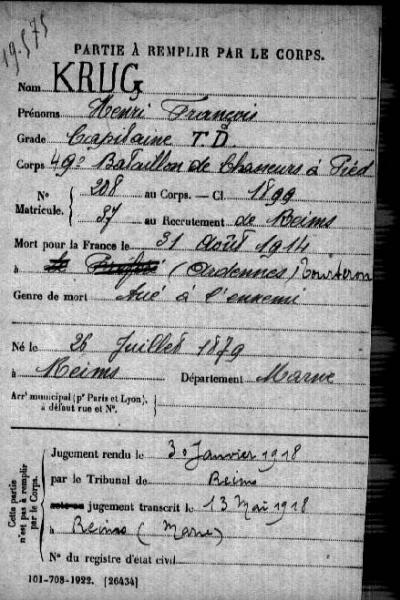 19.575
PARTIE À REMPLIR PAR LE CORPS.
Nom KRUG
Prénoms Henri François
Grade Capitaine T.D.
Corps 49e Bataillon de Chasseurs à Pied
N° 208 au Corps. — Cl. 1899
Matricule. 87 au Recrutement de Reims
Mort pour la France le 31 Août 1914
à (Ardennes) Tourteron
Genre de mort Tué à l'ennemi
Né le 26 Juillet 1879
à Reims Département Marne
Arrt municipal (pr Paris et Lyon),
à défaut rue et N°.
Cette partie
n'est pas à remplir
par le Corps.
Jugement rendu le 30 Janvier 1918
par le Tribunal de Reims
jugement transcrit le 13 Mai 1918
à Reims (Marne)
N° du registre d'état civil
101-708-1922. [26434]